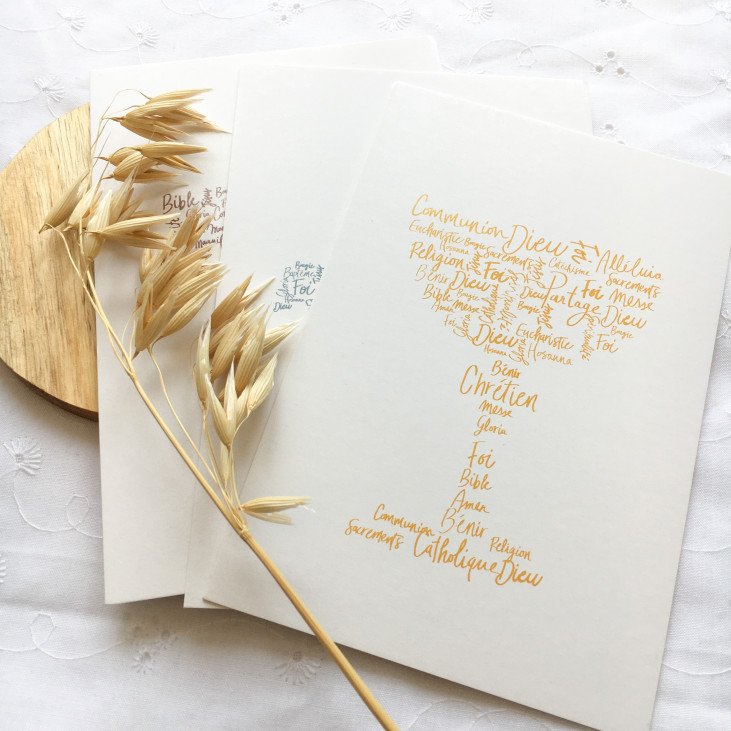 Communion Dieu Foi Alléluia
Eucharistie Bougie Sacrements Catéchisme Sacrements
Religion Hosanna Foi Prix Foi Messe
Bénir Dieu Bougie Dieu Partage Dieu
Bible Messe
Amen
Foi Dieu Eucharistie Bougie
Hosanna Gloria Hosanna Foi
Bénir
Chrétien
Messe
Gloria
Foi
Bible
Amen
Communion Bénir
Sacrements Catholique Religion
Dieu
Bougie
Baptême
Foi
Hosanna
Dieu
Bible
Gloria
Messe